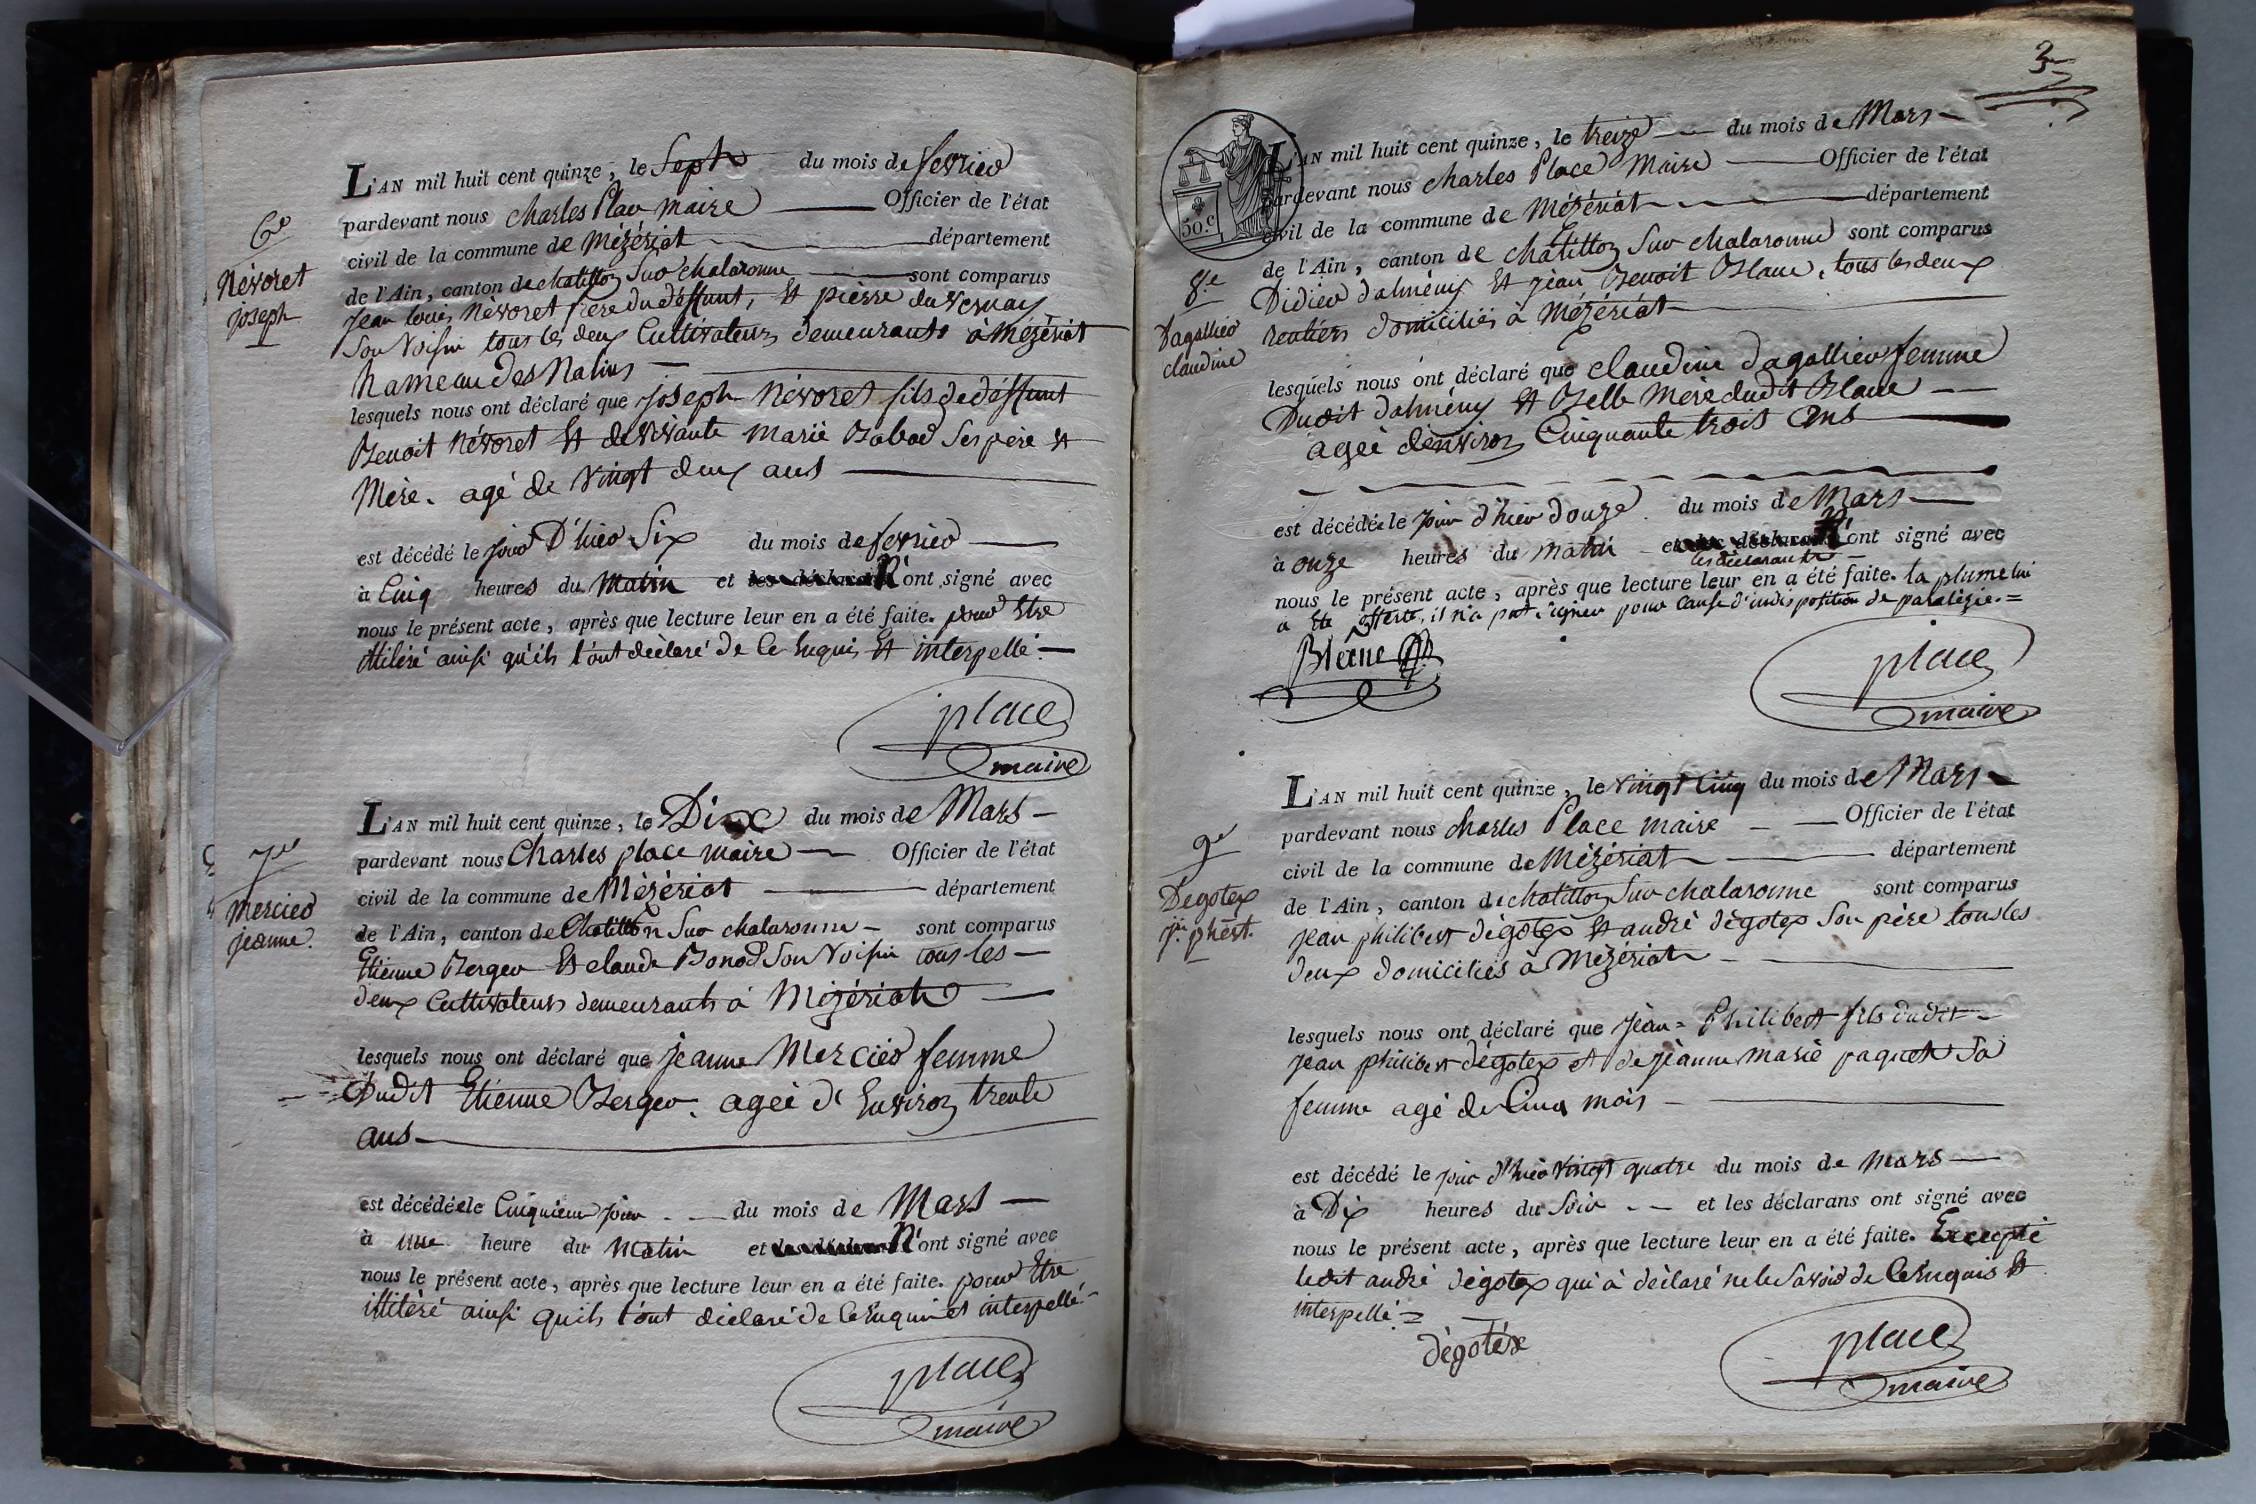 6e
Névoret
joseph
L'AN mil huit cent quinze, le Sept du mois de fevrier
pardevant nous charles Place maire Officier de l'état
civil de la commune de Mézériat département
de l'Ain, canton de chatillon Sur chalaronne sont comparus
jean louis Névoret frere du deffunt, Et pierre duvernay
Son Voisin tous les deux Cultivateurs demeurants à Mézériat
hameau des Nalins
lesquels nous ont déclaré que joseph Névoret fils de déffunt
Benoit Névoret Et de vivante Marie Babad Ses père Et
Mère. agé de Vingt deux ans
est décédé le jour D'hier Six du mois de fevrier
à Cinq heures du Matin et les déclarans N'ont signé avec
nous le présent acte, après que lecture leur en a été faite. pour Etre
illitéré ainsi qu'ils l'ont déclaré de Ce Enquis Et interpellé.
place
maire
7e
Mercier
jeanne.
L'AN mil huit cent quinze, le Dix du mois de Mars
pardevant nous Charles place maire Officier de l'état
civil de la commune de Mézériat département
de l'Ain, canton de Chatillon Sur chalaronne sont comparus
Etienne Berger Et claude Bonod Son Voisin tous les
deux Cultivateurs demeurants à Mézériat
lesquels nous ont déclaré que jeanne Mercier femme
Dudit Etienne Berger. agée d'Environ trente
ans
est décédée le Cinquieme jour du mois de Mars
à une heure du Matin et N'ont signé avec
nous le présent acte, après que lecture leur en a été faite. pour Etre
illitéré ainsi qu'ils l'ont déclaré de Ce Enquis et interpellé.
place
maire
3
50.c
8.e
Dagallier
claudine
L'AN mil huit cent quinze, le treize du mois de Mars
pardevant nous charles Place Maire Officier de l'état
civil de la commune de Mézériat département
de l'Ain, canton de chatillon Sur chalaronne sont comparus
Didier dalmény Et jean Benoit Blanc, tous les deux
rentiers domiciliés à Mézériat
lesquels nous ont déclaré que claudine dagallier femme
Dudit dalmény Et Belle Mère dudit Blanc
agée d'environ Cinquante trois Ans
est décédée le jour d'hier douze du mois de Mars
à onze heures du matin et les déclarans N'ont signé avec
les déclarants
nous le présent acte, après que lecture leur en a été faite. la plume lui
a été offerte, il n'a put signer pour cause d'indisposition de paralézie. =
Blanc
place
maire
9e
Dégotex
jn. phbert.
L'AN mil huit cent quinze, le vingt Cinq du mois de Mars
pardevant nous charles Place maire Officier de l'état
civil de la commune de Mézériat département
de l'Ain, canton de chatillon Sur chalaronne sont comparus
jean philibert dégotex Et andré dégotex Son père tous les
deux domiciliés à Mézériat
lesquels nous ont déclaré que jean = Philibert fils dudit
jean philibert dégotex et de jeanne marie paquet Sa
femme agé de Cinq mois
est décédé le jour d'hier Vingt quatre du mois de Mars
à Dix heures du Soir et les déclarans ont signé avec
nous le présent acte, après que lecture leur en a été faite. Excepté
ledit andré dégotex qui à déclaré ne le Savoir de Ce Enquis Et
interpellé =
dégotex
place
maire